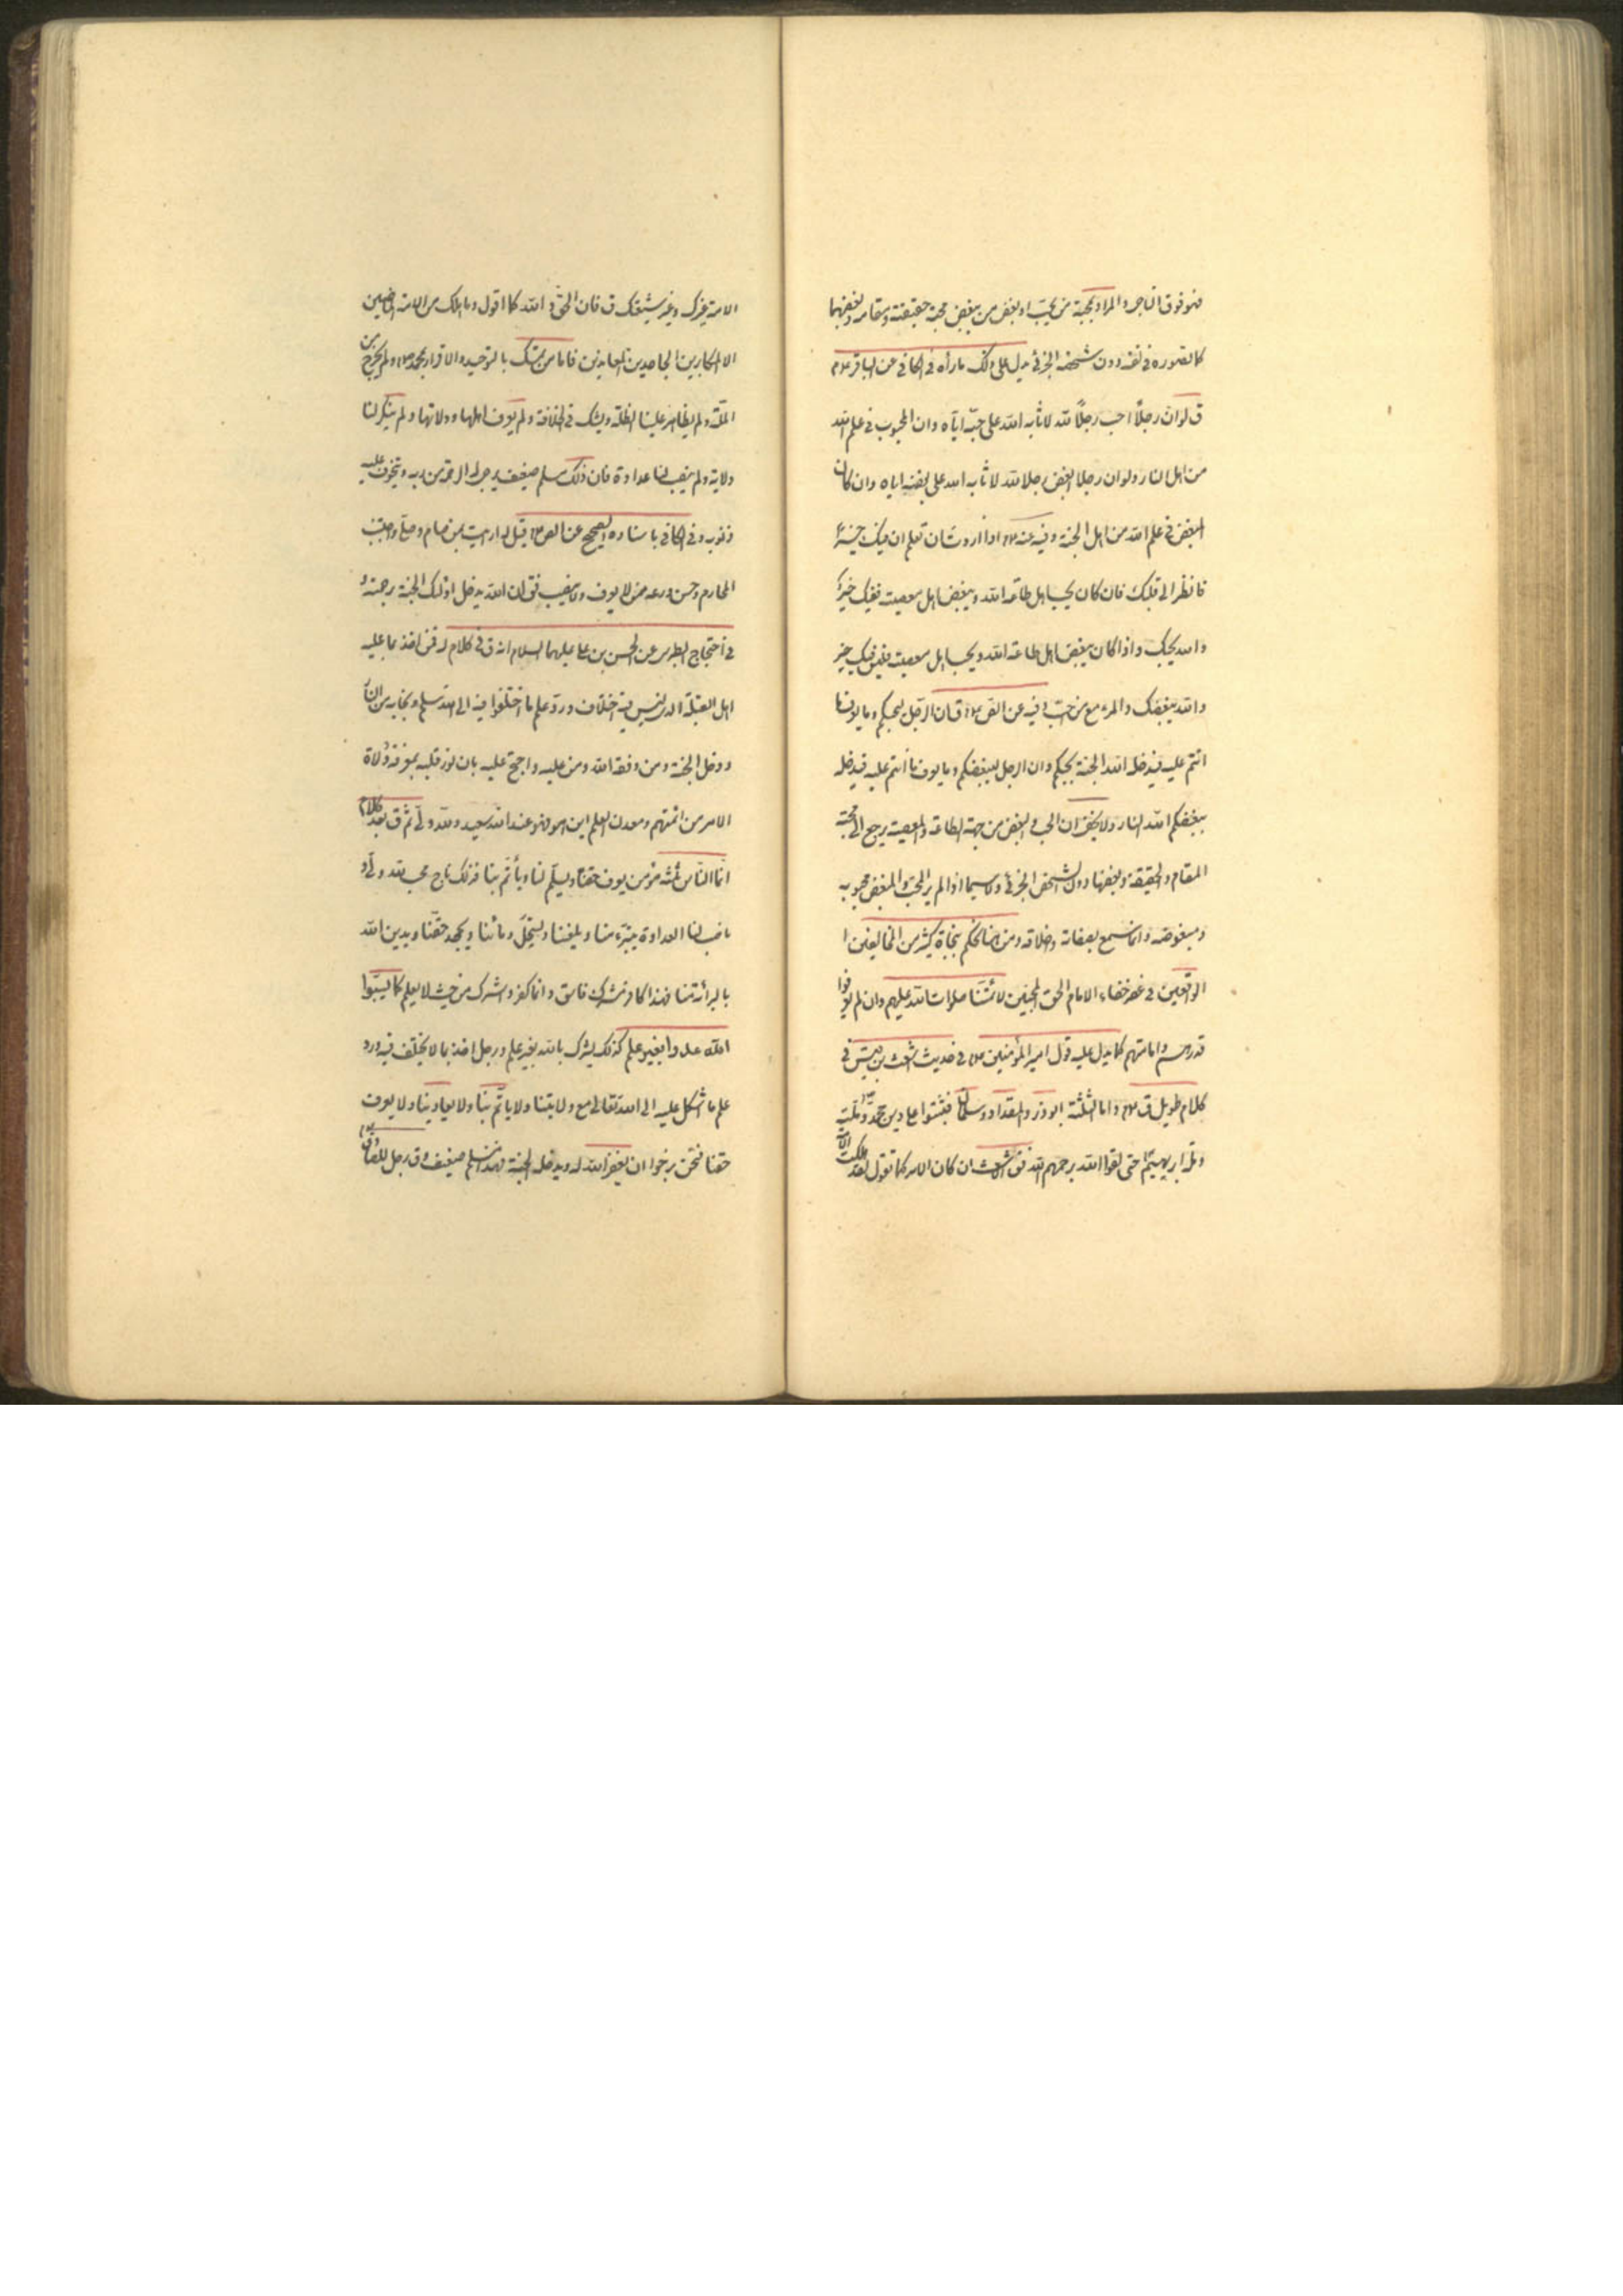 فهو فوق الناجى والمراد بمحبة من يحب او بغض من يبغض محبة حقيقته ومقامه وبغضهما
كما تصوره فى نفسه دون شخصه الجزئى يدل على ذلك ما رواه فى الكافى عن الباقر ع م
ق لو ان رجلاً احب رجلاً لله لاثابه الله على حبّه اياه وان كان المحبوب فى علم الله
من اهل النار ولو ان رجلا ابغض رجلا لله لاثابه الله على بغضه اياه وان كان
المبغض فى علم الله من اهل الجنة وفيه عنه ع م اذا اردت ان تعلم ان فيك خيراً
فانظر الى قلبك فان كان يحب اهل طاعة الله ويبغض اهل معصيته ففيك خير
والله يحبك واذا كان يبغض اهل طاعة الله ويحب اهل معصيته فليس فيك خير
والله يبغضك والمرء مع من احبّ وفيه عن الص ع م قال ان الرجل ليحبكم وما يعرف ما
انتم عليه فيدخله الله الجنة بحبكم وان الرجل ليبغضكم وما يعرف ما انتم عليه فيدخله
ببغضكم الله النار ولا يخفى ان الحب والبغض من جهة الطاعة والمعصية يرجع الى محبة
المقام والحقيقة وبغضها دون الشخص الجزئى ولا سيما اذا لم ير المحبّ والمبغض محبوبه
ومبغوضه وانما سمع بصفاته واخلاقه ومن هنا نحكم بنجاة كثير من المخالفين ا
الواقعين فى عصر خفاء الامام الحق المحبّين لائمتنا صلوات الله عليهم وان لم يعرفوا
قدرهم وامامتهم كما يدل عليه قول امير المؤمنين ع م فى حديث اشعث بن قيس فى
كلام طويل ق ع م واما الثلثة ابو ذر والمقداد وسلمان فثبتوا على دين محمد وملته
وملة ابراهيم حتى لقوا الله يرحمهم الله فق الاشعث ان كان الامر كما تقول لقد هلكت الامة
الامة غيرك وغير شيعتك ق فان الحق والله كما اقول وما هلك من الامة الا الناصبين
الا المكابرين الجاحدين المعاندين فاما من تمسك بالتوحيد والاقرار بمحمد ص م ولم يخرج من
الملّة ولم يظاهر علينا الظلمة ويشك فى الخلافة ولم يعرف اهلها وولاتها ولم ينكر لنا
ولاية ولم ينصب لنا عداوة فان ذلك مسلم ضعيف يرجى له الرحمة من ربه ويتخوف عليه
ذنوبه وفى الكافى باسناده الصحيح عن الص ع م قيل له ارايت من صام وصلى واجتنب
المحارم وحسن ورعه ممن لا يعرف ولا ينصب فق ان الله يدخل اولئك الجنة برحمته و
فى احتجاج الطبرسى عن الحسن بن على عليهما السلام انه ق فى كلام له فمن اخذ بما عليه
اهل القبلة الذى ليس فيه اختلاف ورد علم ما اختلفوا فيه الى الله سلم ونجا به من النار
ودخل الجنة ومن وفقه الله ومنّ عليه واحتج عليه بان نور قلبه بمعرفة ولاة
الامر من ائمتهم ومعدن العلم اين هو فهو عند الله سعيد ولله ولىّ ثم ق بعد كلام
انما الناس ثلثه مؤمن يعرف حقنا ويسلّم لنا ويأتمّ بنا فذلك ناج محب لله ولىّ و
ناصب لنا العداوة يتبرّء منا ويلعننا ويستحلّ دمائنا ويجحد حقّنا ويدين الله
بالبرائة منا فهذا كافر مشرك فاسق وانما كفر واشرك من حيث لا يعلم كما يسبّوا
الله عدوا بغير علم كذلك يشرك بالله بغير علم ورجل اخذ بما لا يختلف فيه ورد
علم ما اشكل عليه الى الله تعالى مع ولايتنا ولا ياتمّ بنا ولا يعادينا ولا يعرف
حقنا فنحن نرجوا ان يغفر الله له ويدخله الجنة فهذا مسلم ضعيف وق رجل للصادق ع م